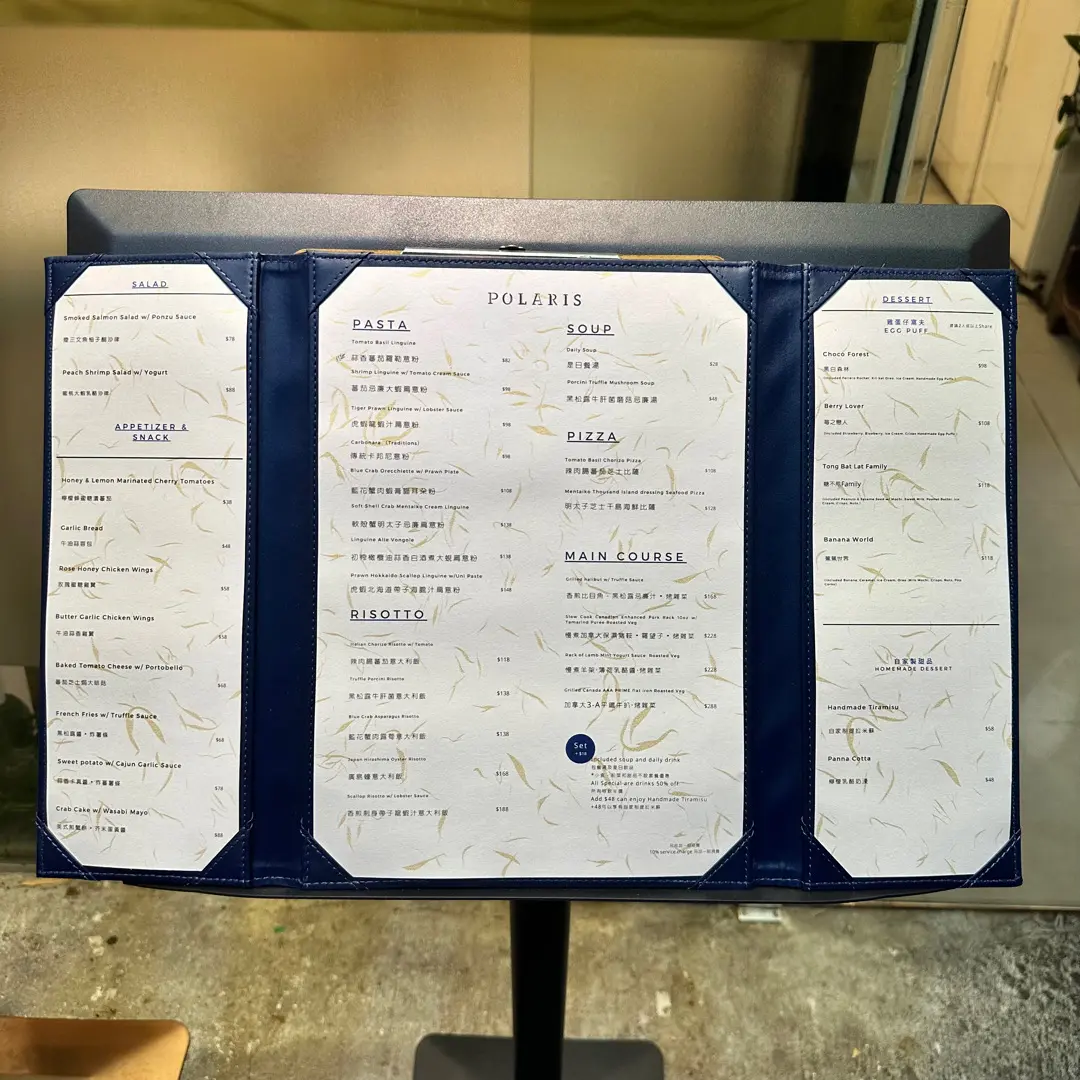 SALAD
Smoked Salmon Salad w/ Ponzu Sauce
$78
Peach Shrimp Salad w/ Yogurt
$88
APPETIZER &
SNACK
Honey & Lemon Marinated Cherry Tomatoes
檸檬蜂蜜糖漬蕃茄
$38
Garlic Bread
牛油蒜蓉包
$48
Rose Honey Chicken Wings
玫瑰蜜糖雞翼
$58
Butter Garlic Chicken Wings
牛油蒜香雞翼
$58
Baked Tomato Cheese w/ Portobello
蕃茄芝士焗大啡菇
$68
French Fries w/ Truffle Sauce
黑松露醬・炸薯條
$68
Sweet potato w/ Cajun Garlic Sauce
$78
Crab Cake w/ Wasabi Mayo
$88
POLARIS
PASTA
Tomato Basil Linguine
蒜香蕃茄羅勒意粉
$82
Shrimp Linguine w/ Tomato Cream Sauce
蕃茄忌廉大蝦扁意粉
$98
Tiger Prawn Linguine w/ Lobster Sauce
虎蝦龍蝦汁扁意粉
$98
Carbonara (Traditions)
傳統卡邦尼意粉
$98
Blue Crab Orecchiette w/ Prawn Plate
藍花蟹肉蝦膏貓耳朵粉
$108
Soft Shell Crab Mentaiko Cream Linguine
軟殼蟹明太子忌廉扁意粉
$138
Linguine Alle Vongole
初榨橄欖油蒜香白酒煮大蜆扁意粉
$138
Prawn Hokkaido Scallop Linguine w/Uni Paste
虎蝦北海道帶子海膽汁扁意粉
$148
RISOTTO
Italian Chorizo Risotto w/ Tomato
辣肉腸蕃茄意大利飯
$118
Truffle Porcini Risotto
黑松露牛肝菌意大利飯
$138
Blue Crab Asparagus Risotto
藍花蟹肉露荀意大利飯
$138
Japan Hiroshima Oyster Risotto
廣島蠔意大利飯
$168
Scallop Risotto w/ Lobster Sauce
香煎刺身帶子龍蝦汁意大利飯
$188
SOUP
Daily Soup
是日餐湯
$28
Porcini Truffle Mushroom Soup
黑松露牛肝菌蘑菇忌廉湯
$48
PIZZA
Tomato Basil Chorizo Pizza
辣肉腸蕃茄芝士比薩
$108
Mentaiko Thousand Island dressing Seafood Pizza
明太子芝士千島海鮮比薩
$128
MAIN COURSE
Grilled Halibut w/ Truffle Sauce
香煎比目魚・黑松露忌廉汁・烤雜菜
$168
Slow Cook Canadian Enhanced Pork Rack 10oz w/
Tamarind Puree Roasted Veg
$228
Rack of Lamb Mint Yogurt Sauce Roasted Veg
慢煮羊架・薄荷乳酪醬・烤雜菜
$228
Grilled Canada AAA PRIME flat iron Roasted Veg
加拿大3-A平鐵牛扒・烤雜菜
$288
Set
+$58
Included soup and daily drink
All Special are drinks 50% off
Add $48 can enjoy Handmade Tiramisu
10% service charge
DESSERT
雞蛋仔窩夫
EGG PUFF
Choco Forest
黑白森林
$98
Berry Lover
莓之戀人
$108
Tong Bat Lat Family
糖不甩Family
$118
Banana World
蕉蕉世界
$118
自家製甜品
HOMEMADE DESSERT
Handmade Tiramisu
自家製提拉米蘇
$58
Panna Cotta
檸檬乳酪奶凍
$48